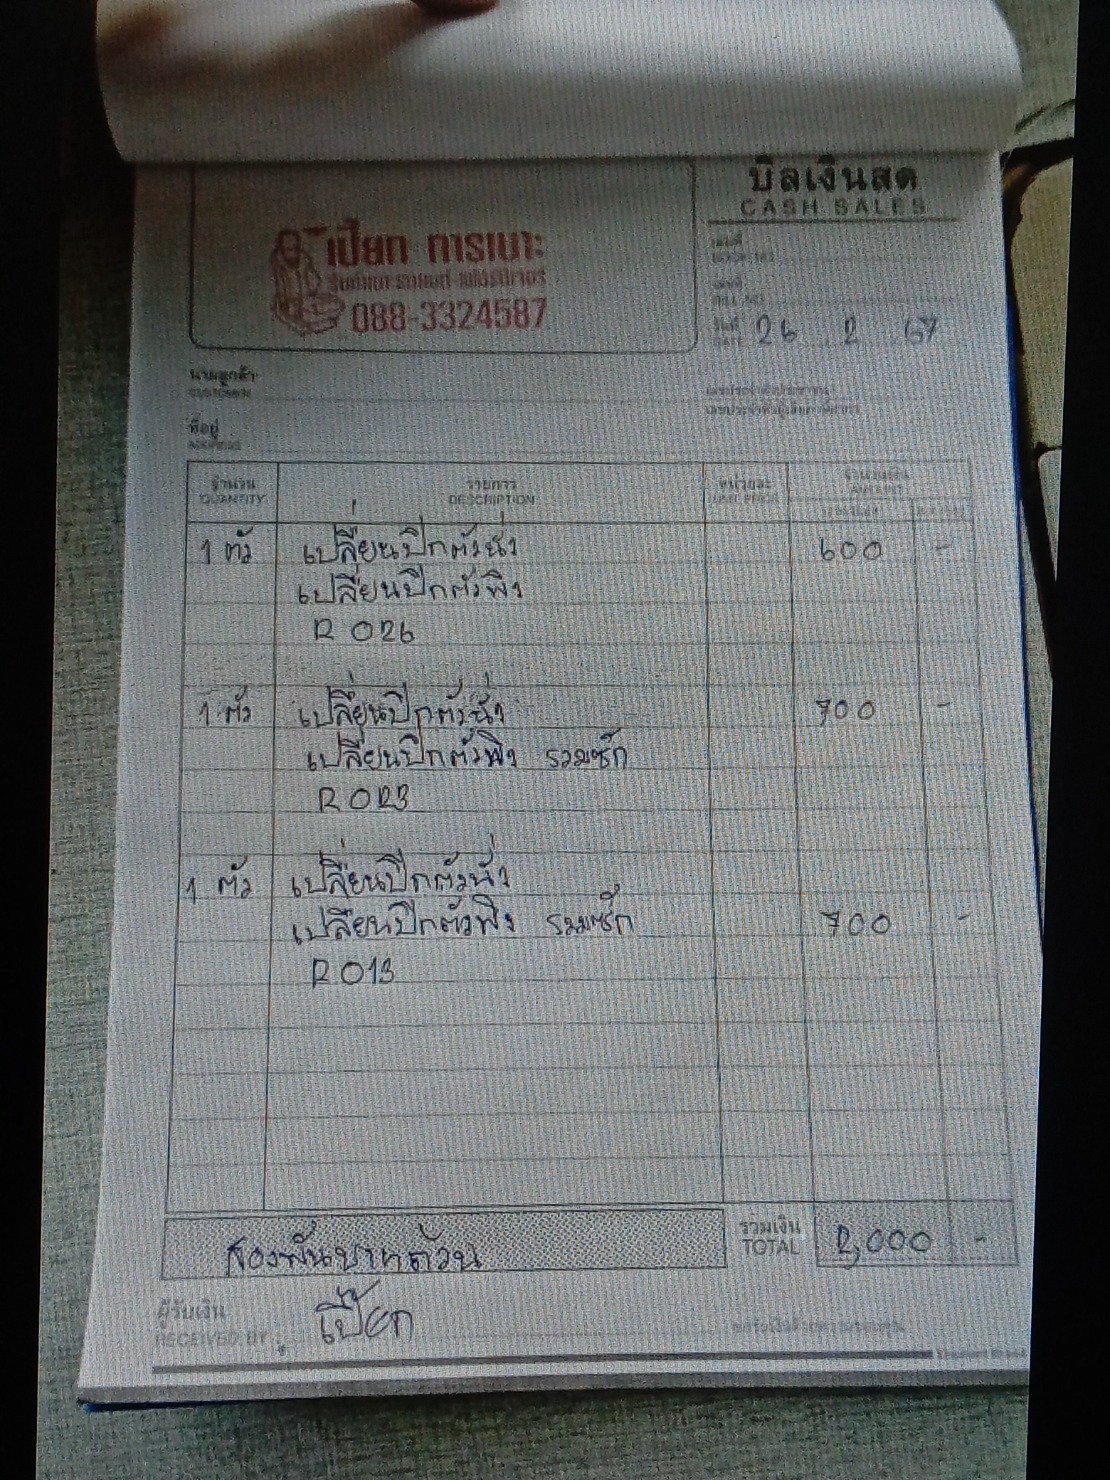 บิลเงินสด
CASH SALES
เปี๊ยก การเบาะ
088-3324587
เล่มที่
BOOK NO.
เลขที่
BILL NO.
วันที่ 26 2 67
DATE
นามลูกค้า
CUSTOMER
ที่อยู่
ADDRESS
จำนวน รายการ หน่วยละ จำนวนเงิน
QUANTITY DESCRIPTION UNIT PRICE AMOUNT
1 ตัว เปลี่ยนปีกตัวนั่ง 600 -
เปลี่ยนปีกตัวพิง
R 026
1 ตัว เปลี่ยนปีกตัวนั่ง 700 -
เปลี่ยนปีกตัวพิง รวมซัก
R 023
1 ตัว เปลี่ยนปีกตัวนั่ง
เปลี่ยนปีกตัวพิง รวมซัก 700 -
R 013
สองพันบาทถ้วน รวมเงิน 2,000 -
TOTAL
ผู้รับเงิน เปี๊ยก
RECEIVED BY